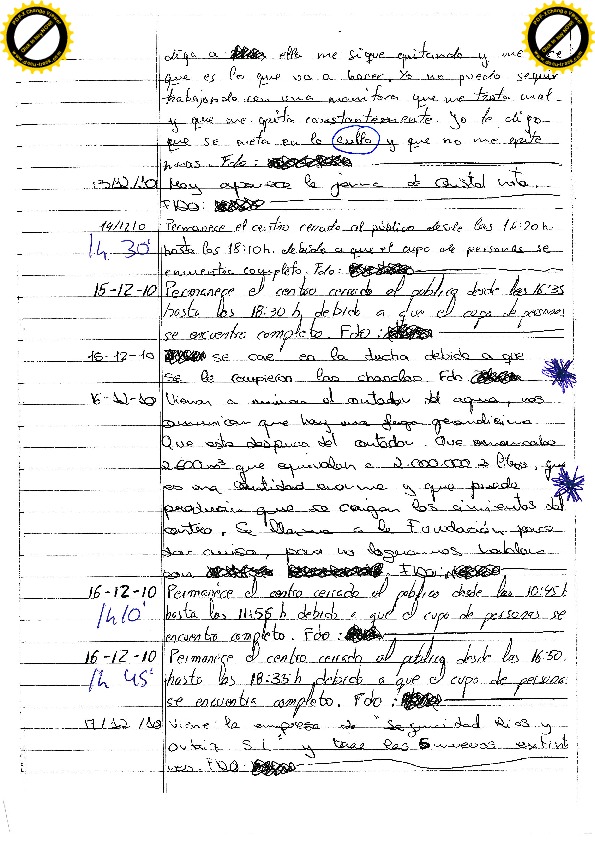 diga a ella me sigue gritando y me
que es lo que va a hacer. Yo no puedo seguir
trabajando con una monitora que me trata mal
y que me grita constantemente. Yo le digo
que se meta en lo suyo y que no me grite
más. Fdo:
13/12/10 Hoy aparece la jarra de cristal rota.
FDO:
14/12/10 Permanece el centro cerrado al público desde las
1h 30' hasta las 18:10h. debido a que el cupo de personas se
encuentra completo. Fdo:
15-12-10 Permanece el centro cerrado al público desde las 16:35
hasta las 18:30 h, debido a que el cupo de personas
se encuentra completo. Fdo:
16-12-10 se cae en la ducha debido a que
se le rompieron las chanclas. Fdo
16-12-10 Vienen a mirar el contador del agua, nos
comunican que hay una fuga grandísima.
Que esta después del contador. Que
2.600m³ que equivalen a 2.000.000 litros, que
es una cantidad enorme y que puede
producir que se caigan los cimientos del
centro. Se llama a la Fundación para
dar aviso, pero no logramos hablar
FDO:
16-12-10 Permanece el centro cerrado al público desde las 10:45h
1h 10' hasta las 11:55 h debido a que el cupo de personas se
encuentra completo. Fdo:
16-12-10 Permanece el centro cerrado al público desde las 16:50
1h 45' hasta las 18:35h debido a que el cupo de personas
se encuentra completo. Fdo:
17/12/10 Viene la empresa de "Seguridad Rios y
Ortiz S.L" y trae los 5 nuevos extint
ores. FDO: